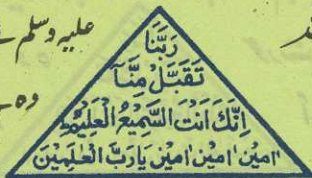 علیہ وسلم نے
رَبَّنَا
تَقَبَّلْ مِنَّآ
اِنَّكَ اَنْتَ السَّمِيْعُ الْعَلِيْمُ
اٰمِيْن اٰمِيْن اٰمِيْن يَارَبَّ الْعٰلَمِيْنَ